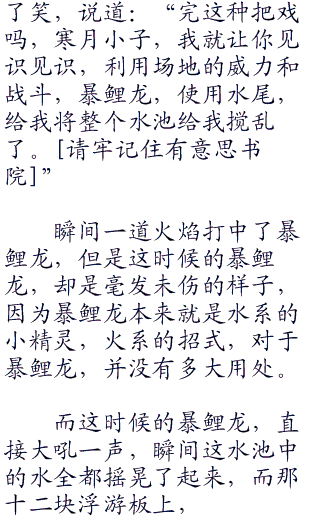 了笑，说道：“完这种把戏
吗，寒月小子，我就让你见
识见识，利用场地的威力和
战斗，暴鲤龙，使用水尾，
给我将整个水池给我搅乱
了。[请牢记住有意思书
院]”
瞬间一道火焰打中了暴
鲤龙，但是这时候的暴鲤
龙，却是毫发未伤的样子，
因为暴鲤龙本来就是水系的
小精灵，火系的招式，对于
暴鲤龙，并没有多大用处。
而这时候的暴鲤龙，直
接大吼一声，瞬间这水池中
的水全都摇晃了起来，而那
十二块浮游板上，